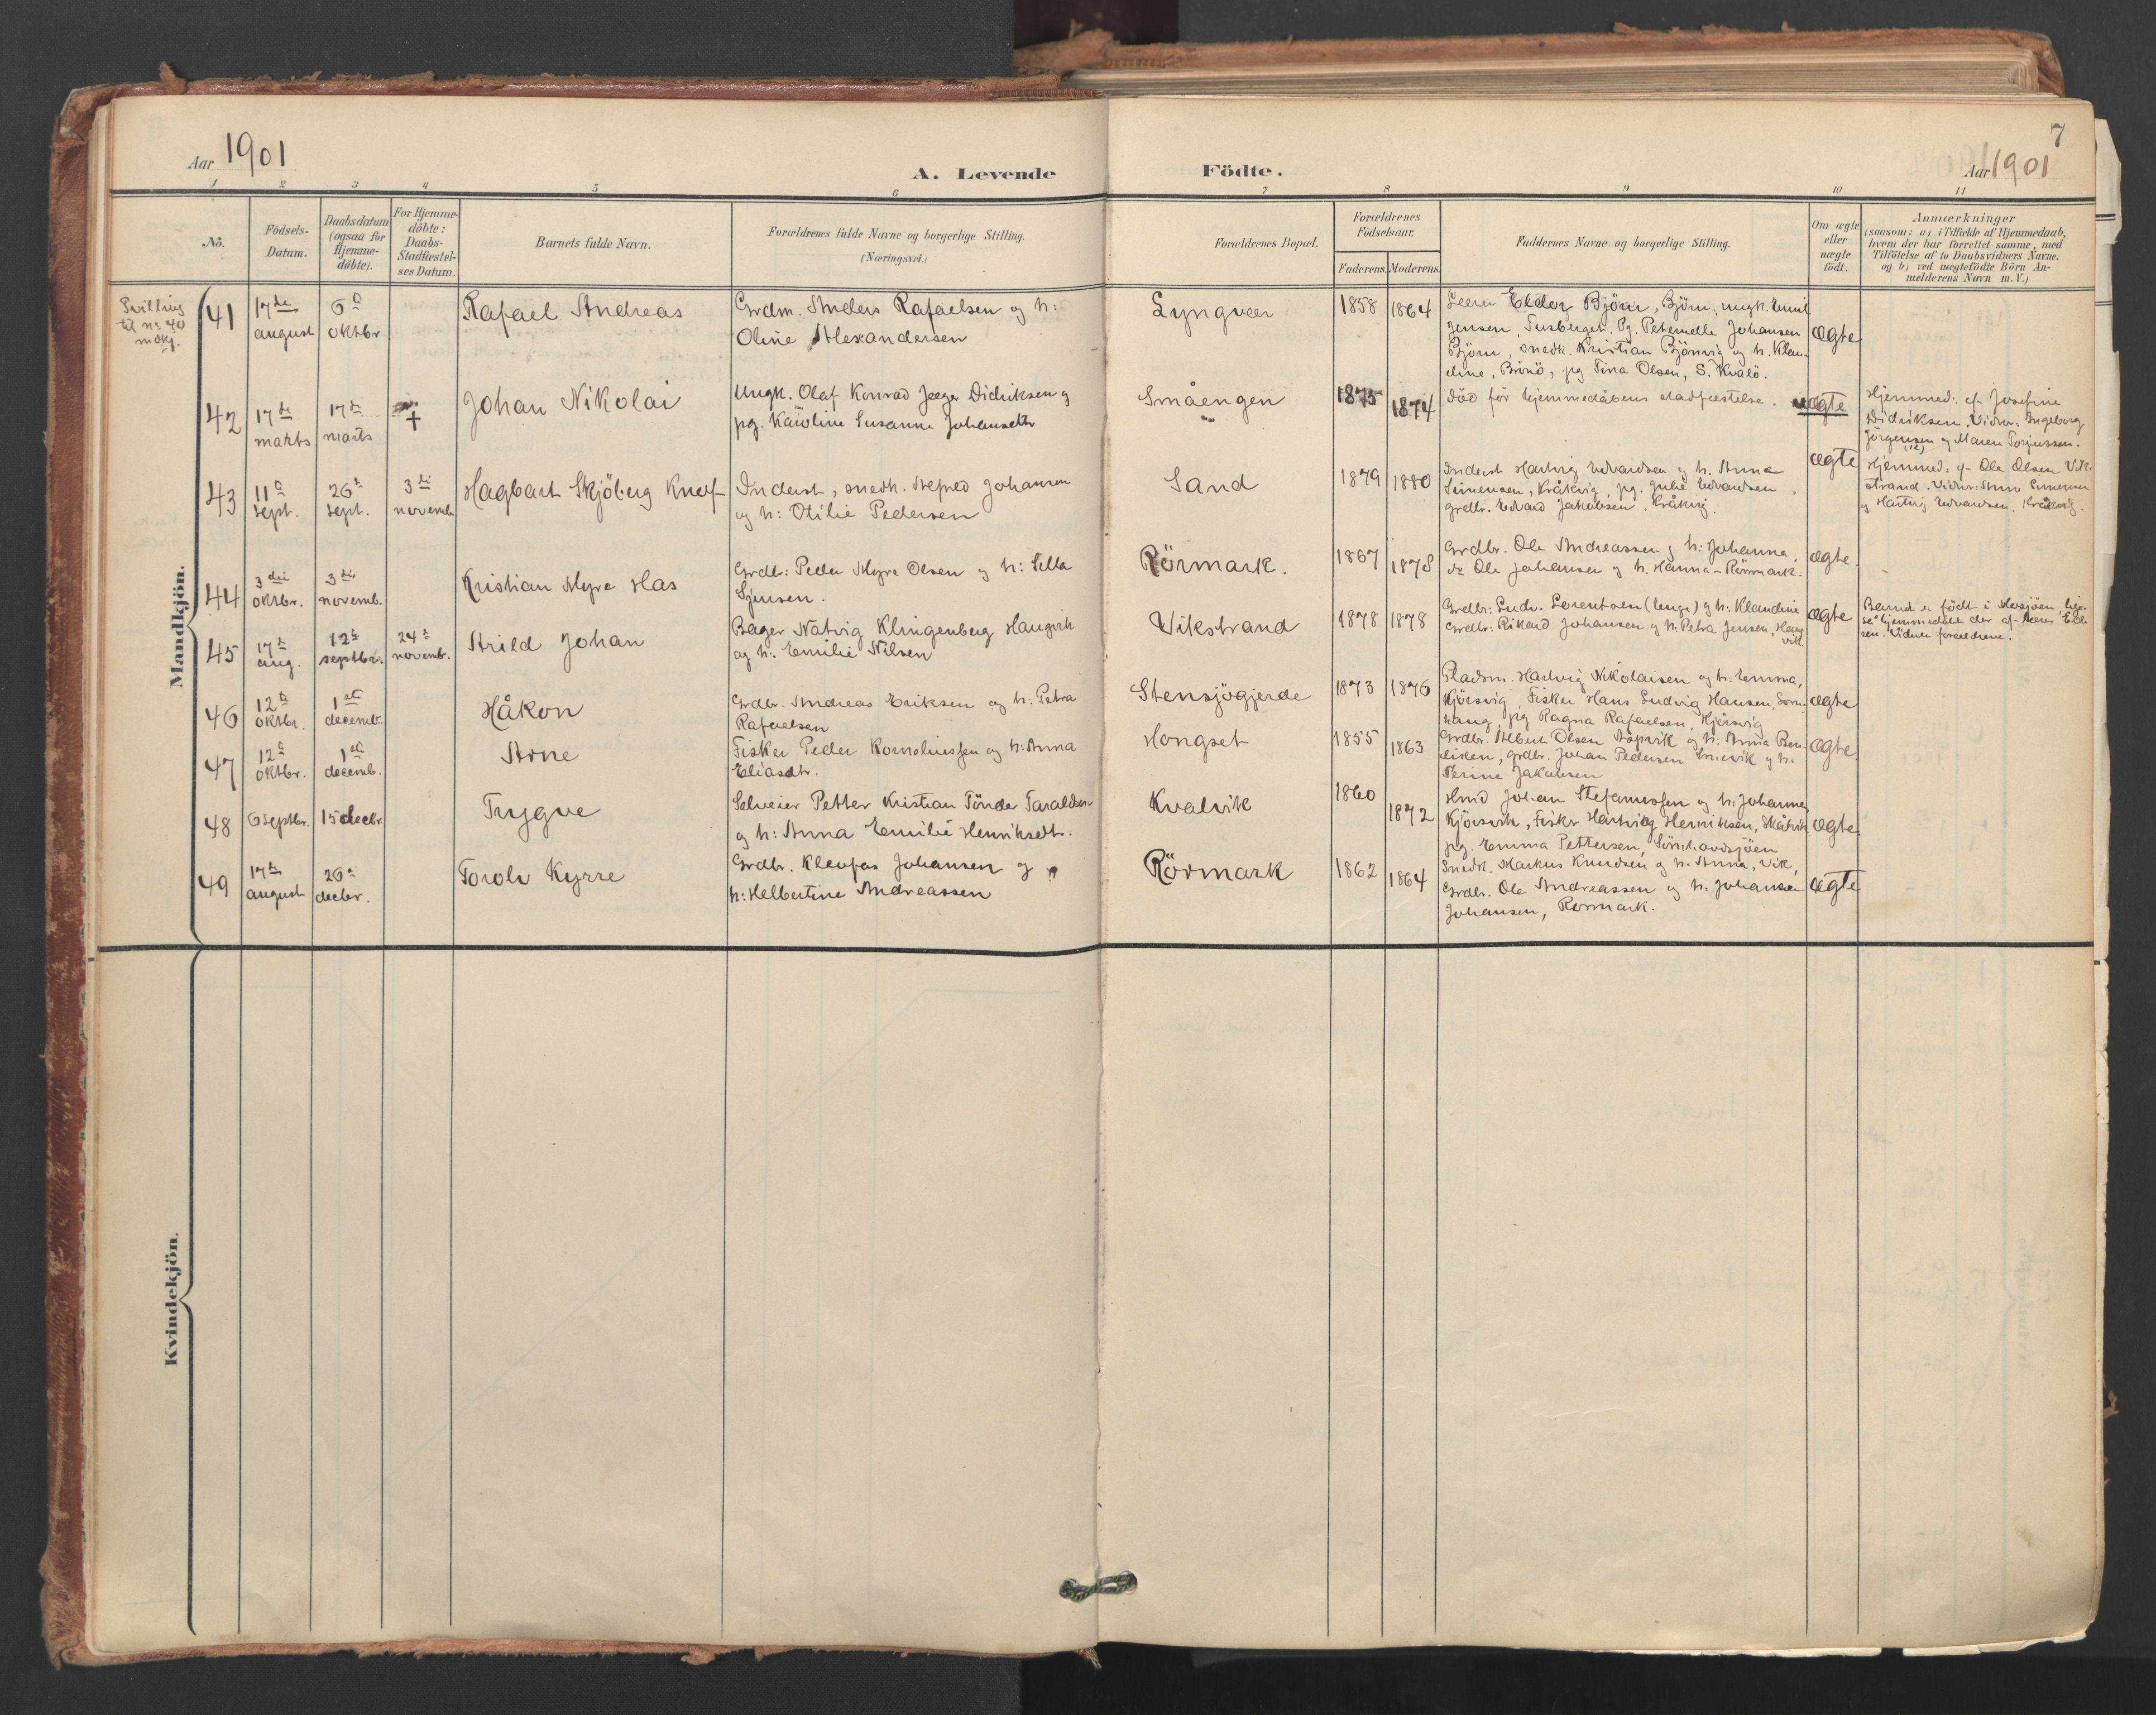 7
Aar 1901
A. Levende Födte.
Aar 1901
1 2 3 4 5 6 7 8 9 10 11
No.
Födsels-
Datum.
Daabsdatum
(ogsaa for
Hjemme-
döbte).
For Hjemme-
döbte:
Daabs-
Stadfæstel-
ses Datum.
Barnets fulde Navn.
Forældrenes fulde Navne og borgerlige Stilling.
(Næringsvei.)
Forældrenes Bopæl.
Forældrenes
Födselsaar.
Faderens. Moderens.
Faddernes Navne og borgerlige Stilling.
Om ægte
eller
uægte
födt.
Anmærkninger
(saasom: a) i Tilfælde af Hjemmedaab,
hvem der har forrettet samme, med
Tilföielse af to Daabsvidners Navne.
og b) ved uægtefödte Börn An-
melderens Navn m. V.)
Mandkjön.
Tvilling
til no 40
41
17de
august
6te
oktbr
Rafael Andreas
Grdm. Anders Rafaelsen og h:
Oline Alexandersen
Lyngveer
1858 1864
Leerer Eldor Björn, Björn, ungk. Emil
Jensen, Tusberget. Pg. Peternelle Johansen
Björn, snedk. Kristian Björnvig og h. Klau-
dine, Brönö, pg Tina Olsen, S. Kvalö.
ægte
42
17de
marts
17de
marts
+
Johan Nikolai
Ungk. Olaf Konrad Jæger Didriksen og
pg. Karoline Susanne Johansdtr
Småengen
1875 1874
död för hjemmedåbens stadfæstelse.
uægte
Hjemmed: af Josefine
Didriksen. Vidner: Ingeborg
Jörgensen og Maren Torjussen.
43
11te
sept.
26de
sept.
3die
novemb.
Hagbart Skjöberg Knef
Inderst, snedk. Alfred Johansen
og h: Otilie Pedersen
Sand
1879 1880
Inderst Hartvig Edvardsen og h. Anna
Simensen, Kråkvig, pg. Julie Edvardsen,
grdbr. Edvard Jakobsen, Kråkvig.
ægte
Hjemmed: af Ole Olsen Vik-
strand. Vidner: Anna Simensen
og Hartvig Edvardsen, Kråkvig.
44
3die
oktbr.
3die
novemb.
Kristian Myre Has
Grdbr: Peder Myre Olsen og h: Sella
Sjursen.
Rörmark.
1867 1878
Grdbr. Ole Andreassen og h: Johanna,
do Ole Johansen og h. Hanna - Rörmark.
ægte
45
17de
aug.
12te
septbr.
24de
novemb.
Arild Johan
Bager Natvig Klingenberg Haugvik
og h: Emilie Nilsen
Vikstrand
1878 1878
Grdbr: Ludv. Lorentsen (Unge) og h: Klaudine
Grdbr: Rikard Johansen og h: Petra Jensen, Haug
vik.
ægte
Barnet er födt i Mosjöen, lige-
så hjemmedöbt der af
Vidner forældrene.
46
12te
oktbr.
1ste
decemb.
Håkon
Grdbr. Andreas Eriksen og h: Petra
Rafaelsen
Stensjögjerde
1873 1876
Pladsm. Hartvig Nikolaisen og h: Emma,
Kjörsvig, Fisker Hans Ludvig Hansen, Sörn-
haug, pg Ragna Rafaelsen, Kjörsvig
ægte
47
12te
oktbr.
1ste
decemb.
Arne
Fisker Peder Korneliussen og h: Anna
Eliasdtr.
Hongset
1855 1863
Grdbr. Albert Olsen Stöpvik og h: Anna Ben-
diksen, grdbr. Johan Pedersen og h.
Trine Jakobsen
ægte
48
6 septbr.
15 decbr
Trygve
Selveier Petter Kristian Tönder Taraldsen
og h: Anna Emilie Henriksdtr.
Kvalvik
1860 1872
Hmd Johan Stefanussen og h: Johanna
Kjörsvik, Fisker Hartvig Henriksen, Skålvik
pg. Emma Pettersen, Sörnhavdsjöen
ægte
49
17de
august
26de
decbr.
Torolv Kyrre
Grdbr. Kleofas Johansen og
h: Helbertine Andreassen
Rörmark
1862 1864
Snedk. Markus Knudsen og h. Anna, Vik,
Grdbr. Ole Andreassen og h. Johanna
Johansen, Rörmark.
ægte
Kvindekjön.